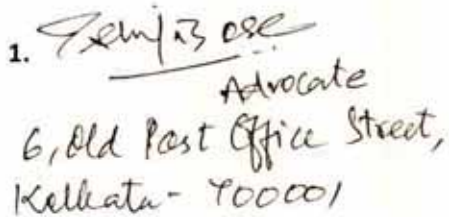 1. Bose
Advocate
6, Old Post Office Street,
Kolkata - 700001